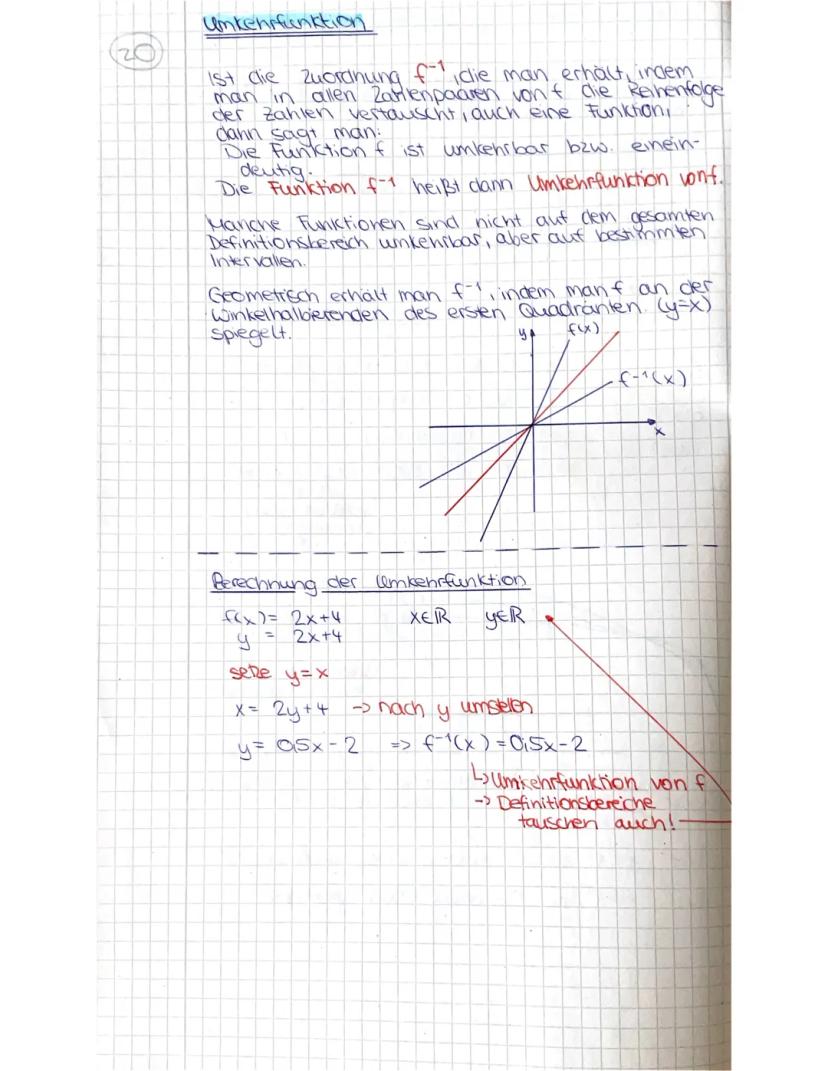 Umkehrfunktion
20
Ist die Zuordnung f⁻¹, die man erhält, indem
man in allen Zahlenpaaren von f die Reihenfolge
der Zahlen vertauscht, auch eine Funktion,
dann sagt man:
Die Funktion f ist umkehrbar bzw. einein-
deutig.
Die Funktion f⁻¹ heißt dann Umkehrfunktion von f.
Manche Funktionen sind nicht auf dem gesamten
Definitionsbereich umkehrbar, aber auf bestimmten
Intervallen.
Geometrisch erhält man f⁻¹, indem man f an der
Winkelhalbierenden des ersten Quadranten (y=x)
spiegelt.
y f(x)
f⁻¹(x)
x
Berechnung der Umkehrfunktion
f(x) = 2x+4 x∈ℝ y∈ℝ
y = 2x+4
setze y=x
x = 2y+4 -> nach y umstellen
y = 0,5x-2 => f⁻¹(x) = 0,5x-2
↳ Umkehrfunktion von f
-> Definitionsbereiche
tauschen auch!